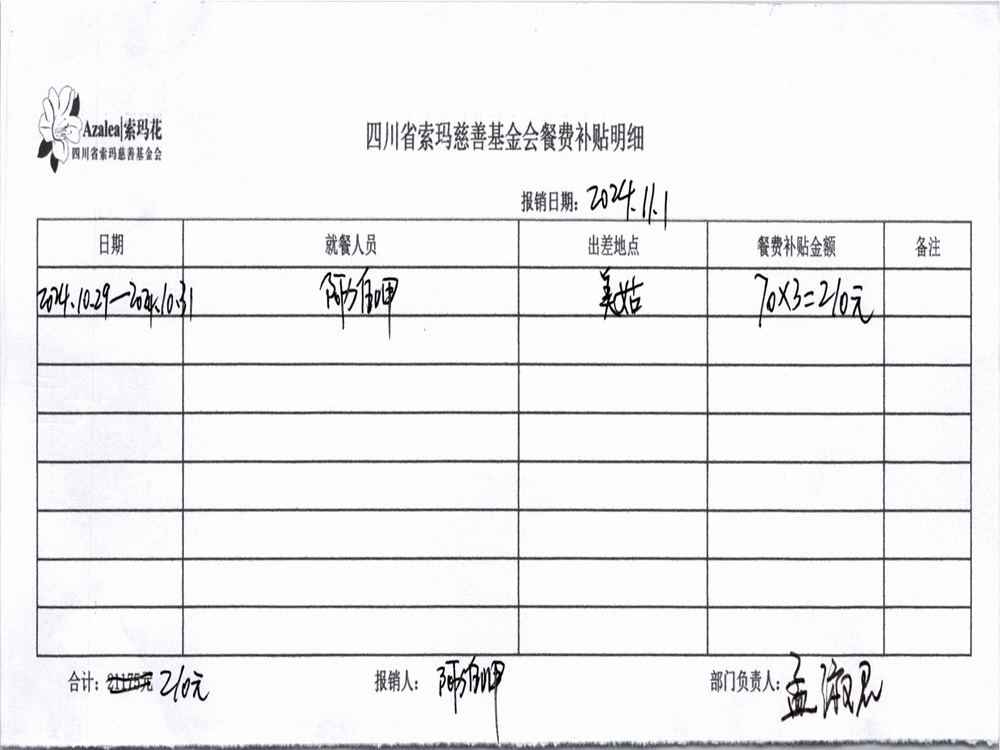 Azalea|索玛花
四川省索玛慈善基金会
四川省索玛慈善基金会餐费补贴明细
报销日期: 2024.11.1
日期 就餐人员 出差地点 餐费补贴金额 备注
2024.10.29—2024.10.31 阿 呷 美姑 70×3=210元
合计: 21175元 210元 报销人: 阿 呷 部门负责人: 孟淑君